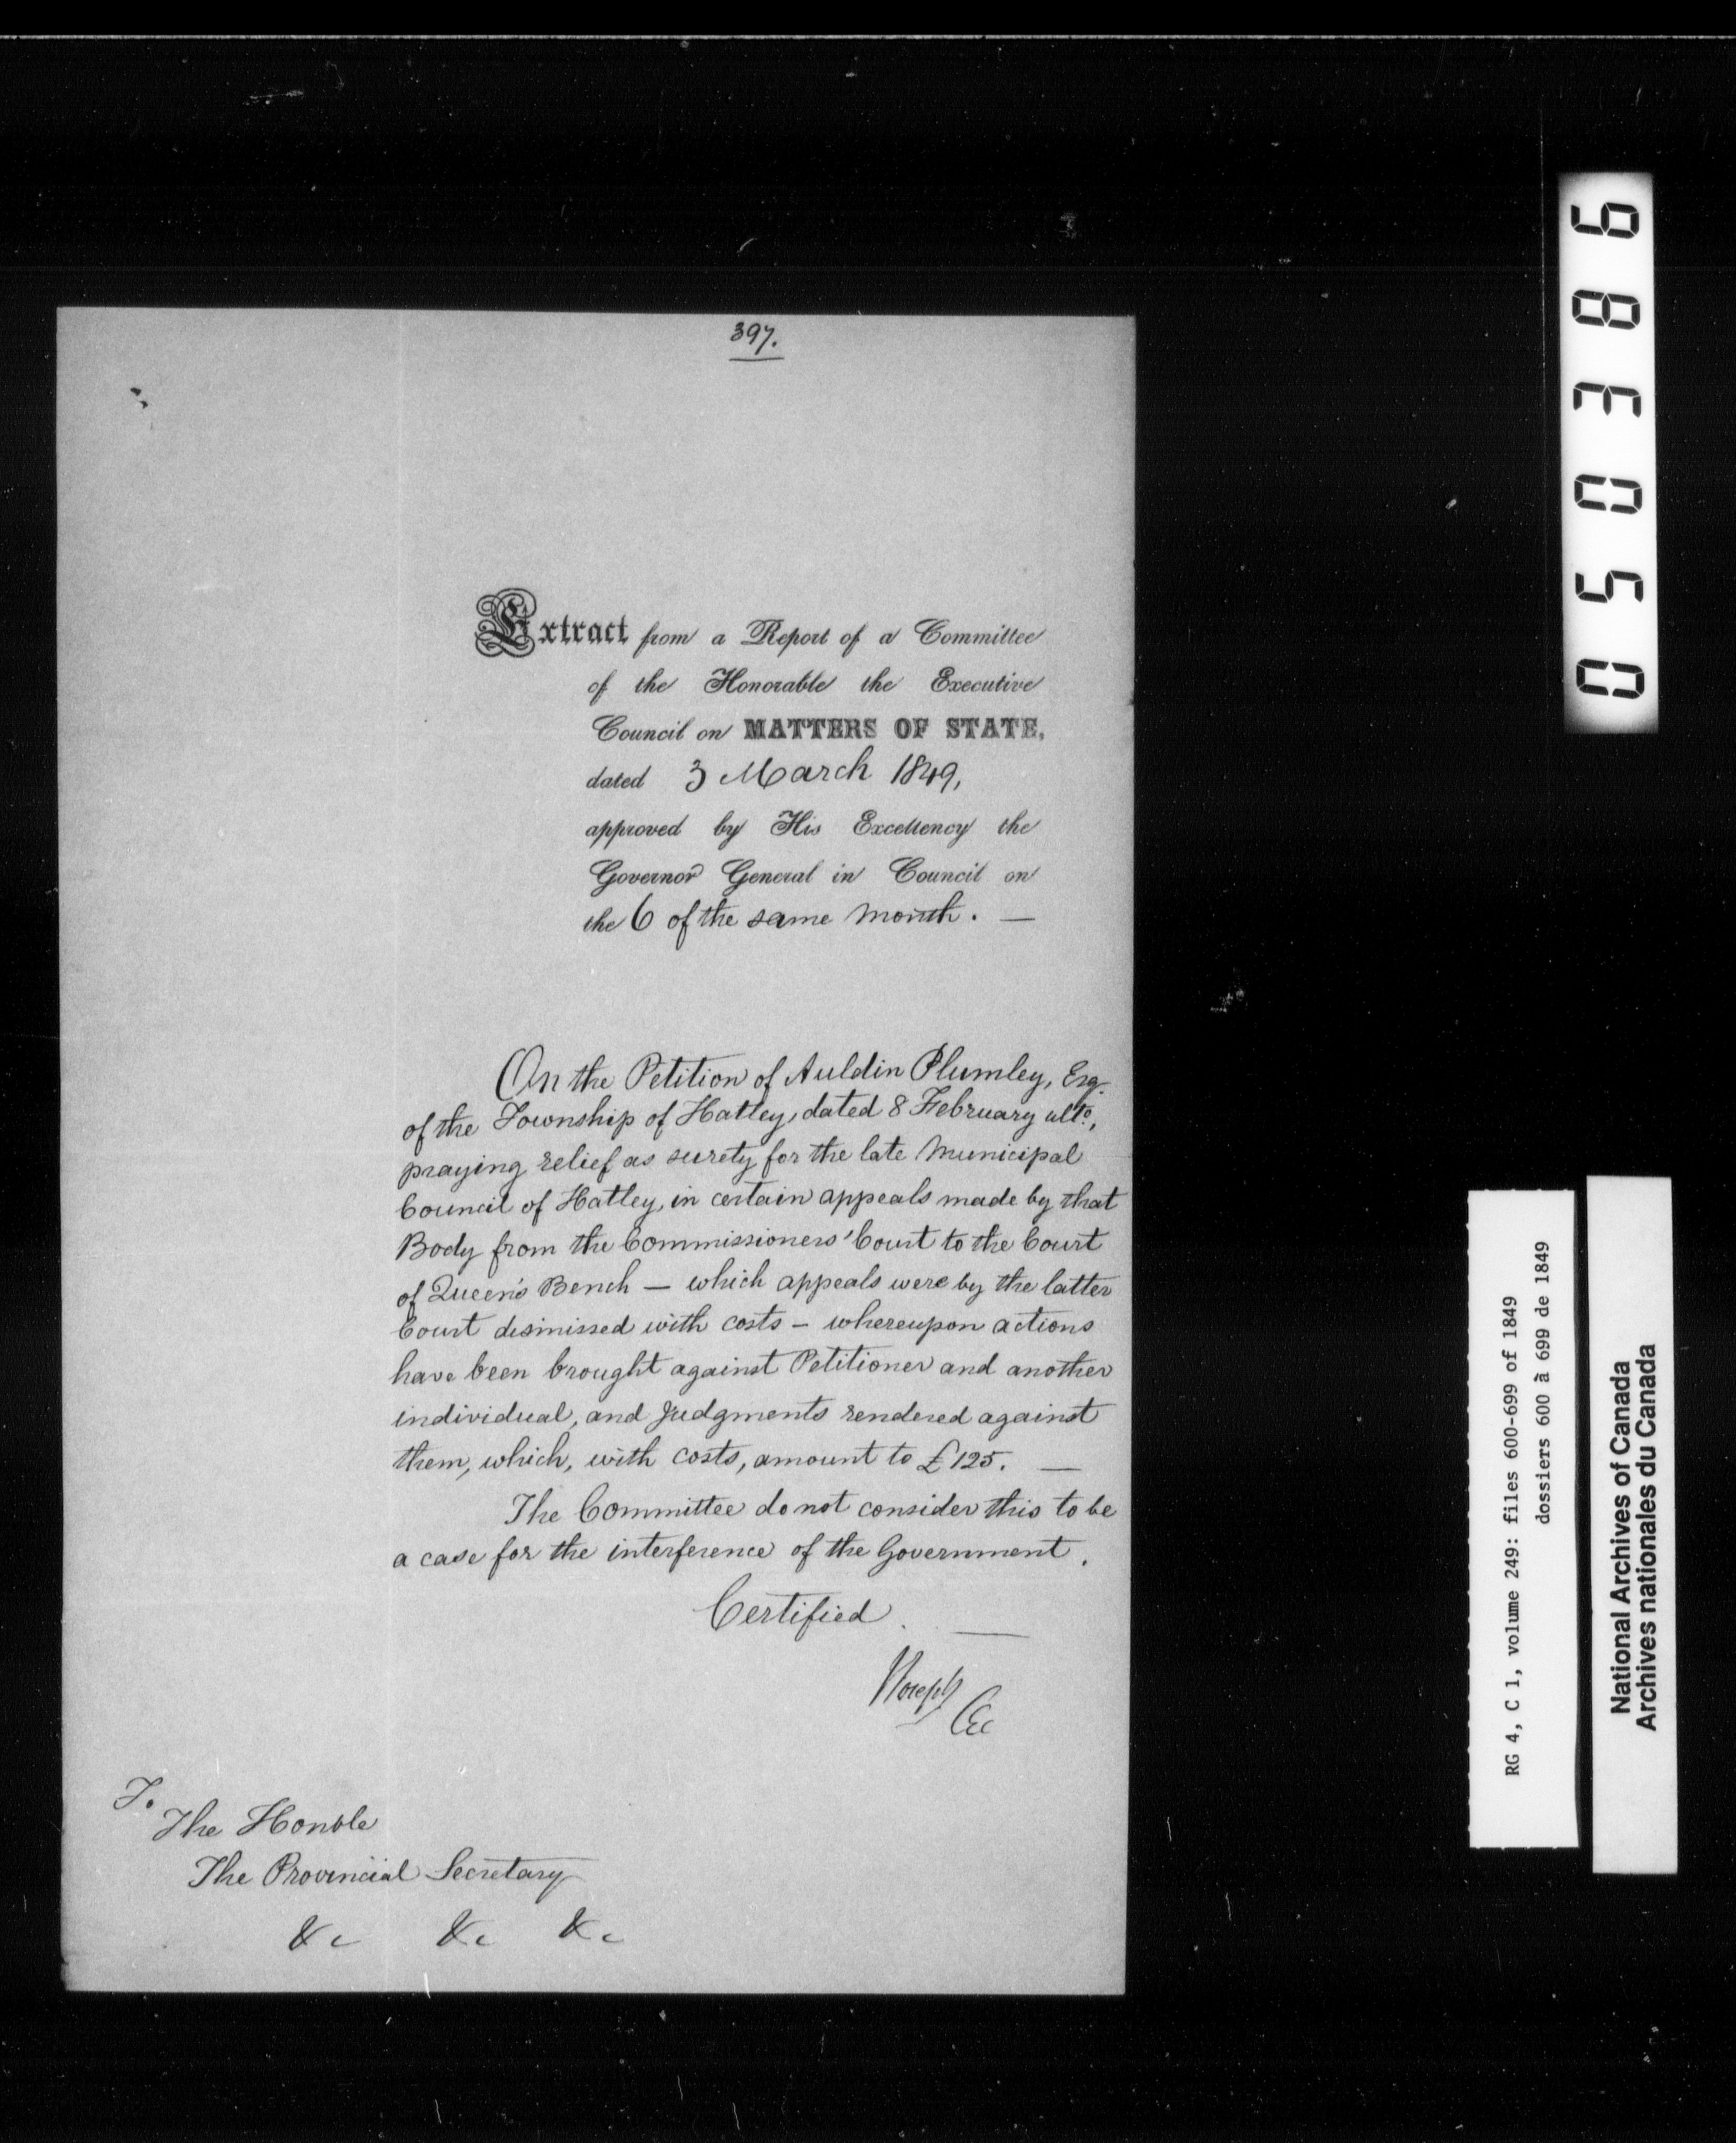 397.
Extract from a Report of a Committee
of the Honorable the Executive
Council on MATTERS OF STATE,
dated 3 March 1849,
approved by His Excellency the
Governor General in Council on
the 6 of the same month. —
On the Petition of Auldin Plumley, Esq.
of the Township of Hatley, dated 8 February ulto.,
praying relief as surety for the late Municipal
Council of Hatley, in certain appeals made by that
Body from the Commissioners' Court to the Court
of Queen's Bench — which appeals were by the latter
Court dismissed with costs – whereupon actions
have been brought against Petitioner and another
individual, and Judgments rendered against
them, which, with costs, amount to £125. —
The Committee do not consider this to be
a case for the interference of the Government.
Certified. —
To
The Honble
The Provincial Secretary
&c &c &c
050386
RG 4, C 1, volume 249: files 600-699 of 1849
dossiers 600 à 699 de 1849
National Archives of Canada
Archives nationales du Canada